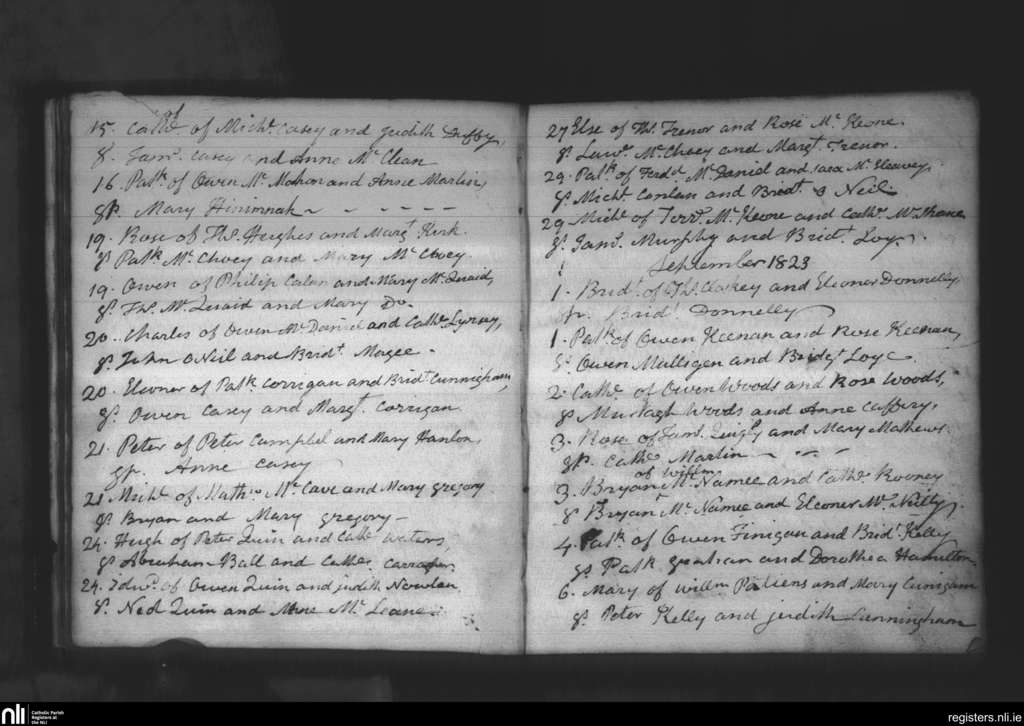 15. Cathe of Michl. Casey and Judith Duffy,
gs. Jams. Casey and Anne Mc Clean
16 Patk. of Owen Mc. Mahon and Anne Martin,
gp. Mary
19. Rose of Ths. Hughes and Margt. Kirk.
gs Patk Mc. Choey and Mary Mc Choey.
19. Owen of Philip Calan and Mary Mc. Quaid,
gs. Ths. Mc. Quaid and Mary Do.
20. Charles of Owen Mc Daniel and Cathe.
gs. John ONeil and Bridt. Magee.
20. Elenor of Patk Corrigan and Bridt Cunnigham,
gs. Owen Casey and Margt. Corrigan
21. Peter of Peter Campbel and Mary Hanlon,
gp. Anne Casey
21 Michl. of Mathw. Mc. Cave and Mary Gregory
gs Bryan and Mary Gregory
24. Hugh of Peter Quin and Cathe Waters,
gs Abraham Ball and Cathe.
24. Edwd. of Owen Quin and Judith Nowlan
gs. Ned Quin and Mc. Leane.
27 Else of Ths. Trenor and Rose Mc. Keone.
gs Lawr. Mc. Choey and Margt. Trenor.
29. Patk. of Ferdd. Mc Daniel and Sara Mc.
gs. Michl. Conlan and Bridt. O Neil
29 Michl. of Terre. Mc. Keone and Cathe. Mc. Shane
gs. Jams. Murphy and Bridt. Loy.
September 1823
1. Bridt. of Ths. Claskey and Elenor Donnelly,
gp. Bridt. Donnelly
1. Patk. of Owen Keenan and Rose Keenan,
gs. Owen Mulligen and Bridgt Loye.
2. Cathe. of Owen Woods and Rose Woods,
gs Murtagh Woods and Anne Caffery.
3. Rose of Jams. Quigly and Mary Mathews.
gp. Cathe. Martin
of Willm
3. Bryan Mc. Namee and Cathe. Rooney
gs Bryan Mc. Namee and Eleoner Mc. Nulty.
4. Patk. of Owen Finigan and Bridt. Kelly
gs Patk Grahan and Dorothea Hamilton.
6. Mary of Willm and Mary Cunigam
gs. Peter Kelly and Judith Cunningham
nli Catholic Parish
Registers at
the NLI
registers.nli.ie